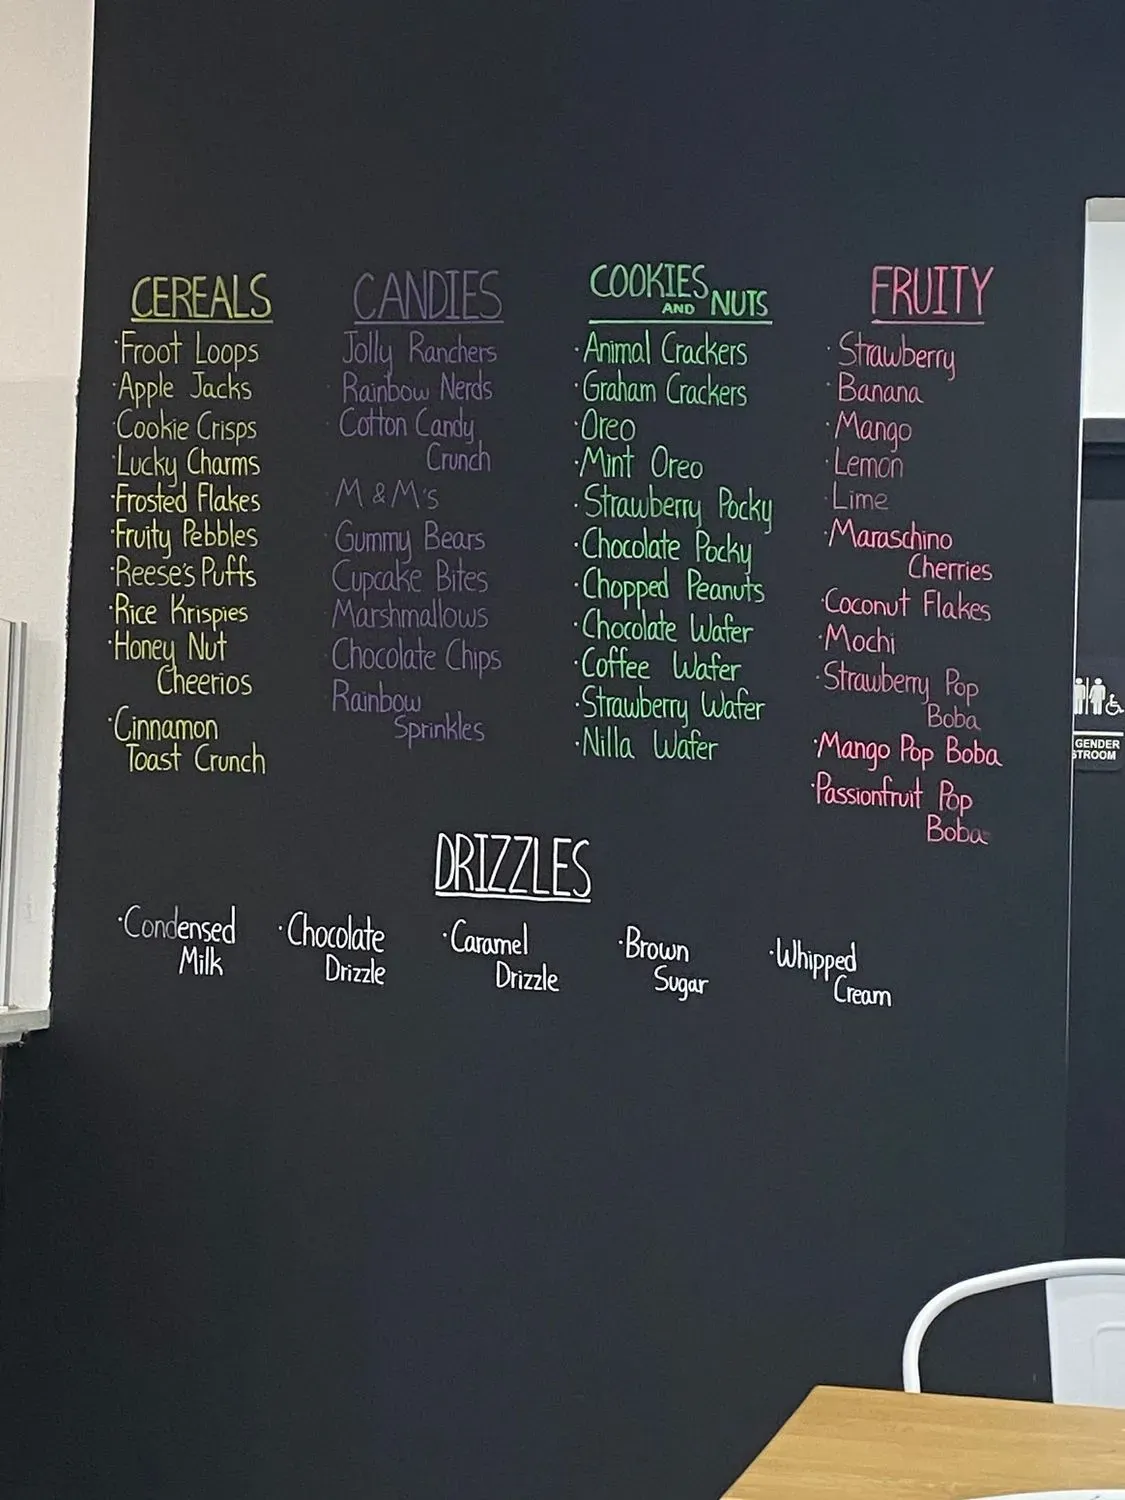 CEREALS
·Froot Loops
·Apple Jacks
·Cookie Crisps
·Lucky Charms
·Frosted Flakes
·Fruity Pebbles
·Reese's Puffs
·Rice Krispies
·Honey Nut
Cheerios
·Cinnamon
Toast Crunch
CANDIES
Jolly Ranchers
·Rainbow Nerds
·Cotton Candy
Crunch
·M & M's
·Gummy Bears
Cupcake Bites
·Marshmallows
·Chocolate Chips
Rainbow
Sprinkles
COOKIES
AND NUTS
·Animal Crackers
·Graham Crackers
·Oreo
·Mint Oreo
·Strawberry Pocky
·Chocolate Pocky
·Chopped Peanuts
·Chocolate Wafer
·Coffee Wafer
·Strawberry Wafer
·Nilla Wafer
FRUITY
·Strawberry
·Banana
·Mango
·Lemon
·Lime
·Maraschino
Cherries
·Coconut Flakes
·Mochi
·Strawberry Pop
Boba
·Mango Pop Boba
·Passionfruit Pop
Boba
DRIZZLES
·Condensed
Milk
·Chocolate
Drizzle
·Caramel
Drizzle
·Brown
Sugar
·Whipped
Cream
GENDER